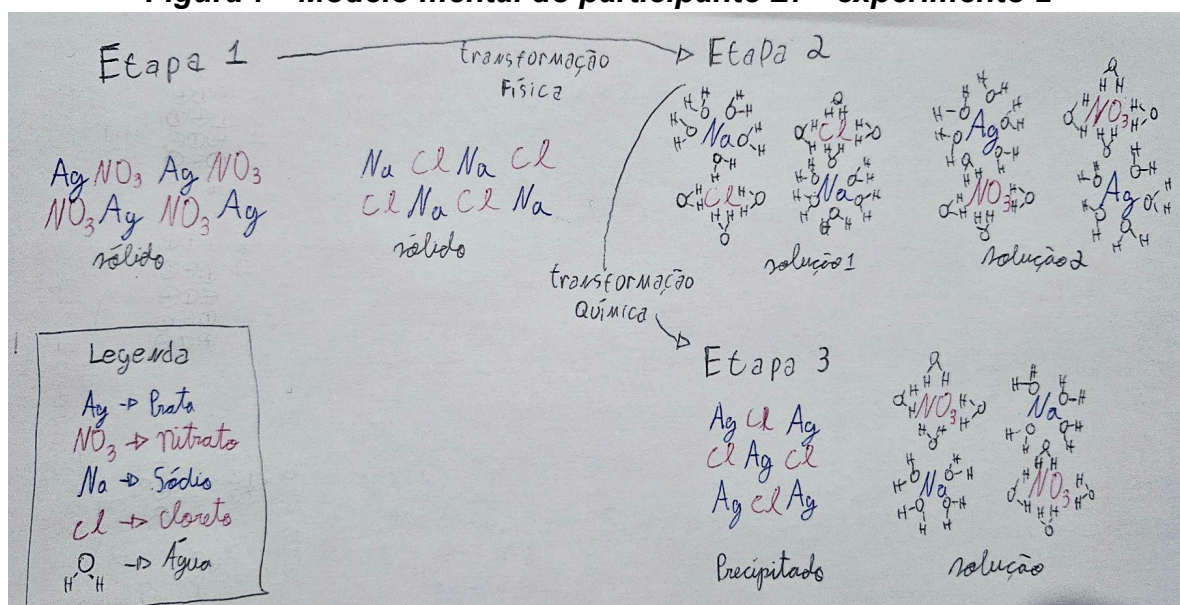 Etapa 1
transformação
Física
Etapa 2
Ag NO₃ Ag NO₃
NO₃ Ag NO₃ Ag
sólido
Na Cl Na Cl
Cl Na Cl Na
sólido
Na Cl
Cl Na
solução 1
Ag NO₃
NO₃ Ag
solução 2
transformação
Química
Etapa 3
Ag Cl Ag
Cl Ag Cl
Ag Cl Ag
Precipitado
NO₃ Na
Na NO₃
solução
Legenda
Ag → Prata
NO₃ → nitrato
Na → Sódio
Cl → cloreto
H O H → Água